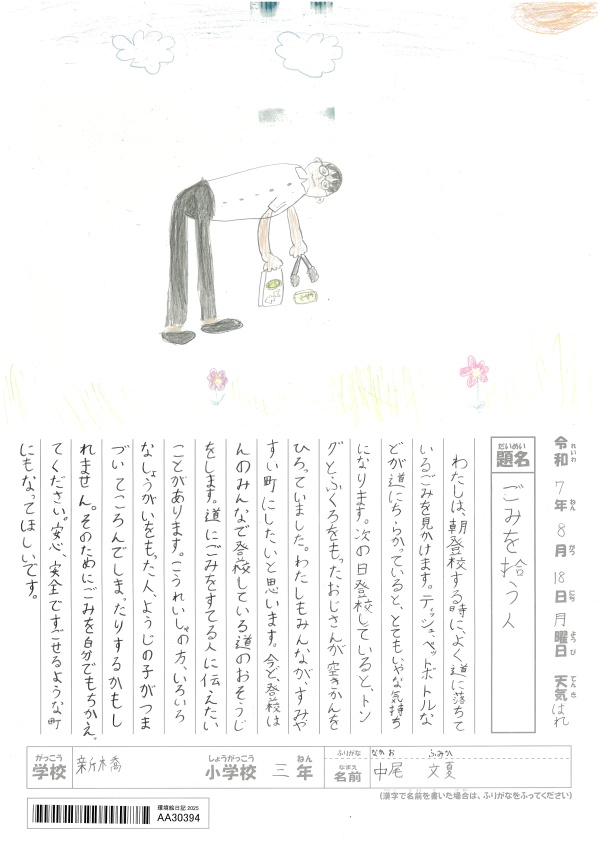 令和 れいわ 7年 ねん 8月 がつ 18日 にち 月曜日 ようび 天気 てんき はれ
だいめい
題名
ごみを拾う人
わたしは、朝登校する時に、よく道に落ちて
いるごみを見かけます。ティッシュ、ペットボトルな
どが道にちらかっていると、とてもいやな気持ち
になります。次の日登校していると、トン
グとふくろをもったおじさんが空きかんを
ひろっていました。わたしもみんなが、すみや
すい町にしたいと思います。今ど、登校は
んのみんなで登校している道のおそうじ
をします。道にごみをすてる人に伝えたい
ことがあります。こうれいしゃの方、いろいろ
なしょうがいをもった人、ようじの子がつま
づいてころんでしまったりするかもし
れません。そのためにごみを自分でもちかえっ
てください。安心、安全ですごせるような町
にもなってほしいです。
がっこう
学校
新橋
しょうがっこう ねん
小学校 三年
ふりがな なかお ふみか
なまえ
名前 中尾 文夏
(漢字で名前を書いた場合は、ふりがなをふってください)
環境絵日記 2025
AA30394